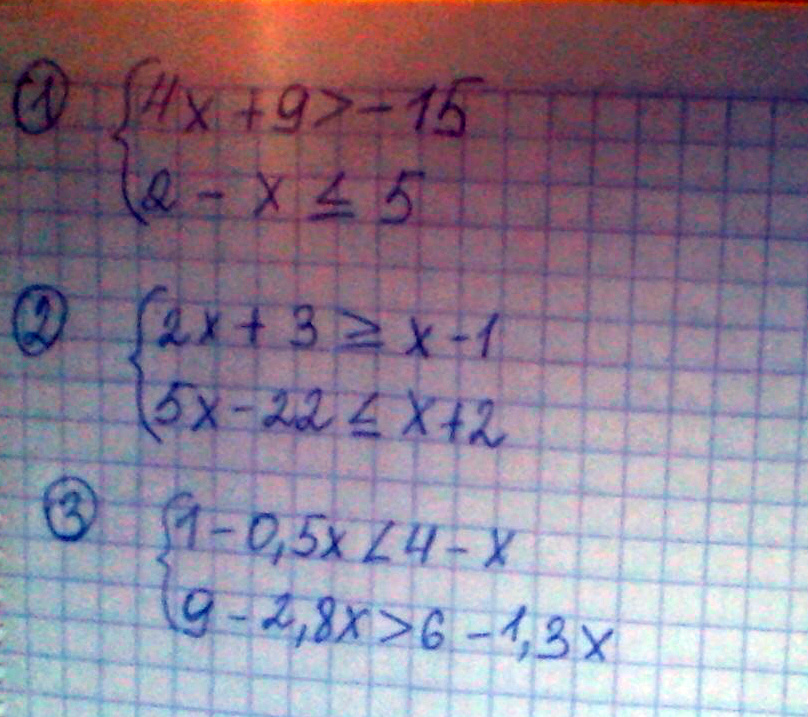 ① { 4x + 9 > -15
2 - x ≤ 5
② { 2x + 3 ≥ x - 1
5x - 22 ≤ x + 2
③ { 1 - 0,5x < 4 - x
9 - 2,8x > 6 - 1,3x